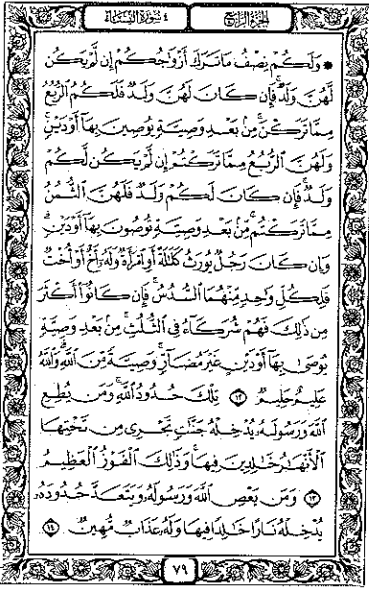 الجزء الرابع
٤ سورة النساء
۞ وَلَكُمْ نِصْفُ مَا تَرَكَ أَزْوَٰجُكُمْ إِن لَّمْ يَكُن
لَّهُنَّ وَلَدٌ ۚ فَإِن كَانَ لَهُنَّ وَلَدٌ فَلَكُمُ ٱلرُّبُعُ
مِمَّا تَرَكْنَ ۚ مِنۢ بَعْدِ وَصِيَّةٍ يُوصِينَ بِهَآ أَوْ دَيْنٍ ۚ
وَلَهُنَّ ٱلرُّبُعُ مِمَّا تَرَكْتُمْ إِن لَّمْ يَكُن لَّكُمْ
وَلَدٌ ۚ فَإِن كَانَ لَكُمْ وَلَدٌ فَلَهُنَّ ٱلثُّمُنُ
مِمَّا تَرَكْتُم ۚ مِّنۢ بَعْدِ وَصِيَّةٍ تُوصُونَ بِهَآ أَوْ دَيْنٍ ۗ
وَإِن كَانَ رَجُلٌ يُورَثُ كَلَٰلَةً أَوِ ٱمْرَأَةٌ وَلَهُۥٓ أَخٌ أَوْ أُخْتٌ
فَلِكُلِّ وَٰحِدٍ مِّنْهُمَا ٱلسُّدُسُ ۚ فَإِن كَانُوٓا۟ أَكْثَرَ
مِن ذَٰلِكَ فَهُمْ شُرَكَآءُ فِى ٱلثُّلُثِ ۚ مِنۢ بَعْدِ وَصِيَّةٍ
يُوصَىٰ بِهَآ أَوْ دَيْنٍ غَيْرَ مُضَآرٍّ ۚ وَصِيَّةً مِّنَ ٱللَّهِ ۗ وَٱللَّهُ
عَلِيمٌ حَلِيمٌ ١٢ تِلْكَ حُدُودُ ٱللَّهِ ۚ وَمَن يُطِعِ
ٱللَّهَ وَرَسُولَهُۥ يُدْخِلْهُ جَنَّٰتٍ تَجْرِى مِن تَحْتِهَا
ٱلْأَنْهَٰرُ خَٰلِدِينَ فِيهَا ۚ وَذَٰلِكَ ٱلْفَوْزُ ٱلْعَظِيمُ
١٣ وَمَن يَعْصِ ٱللَّهَ وَرَسُولَهُۥ وَيَتَعَدَّ حُدُودَهُۥ
يُدْخِلْهُ نَارًا خَٰلِدًا فِيهَا وَلَهُۥ عَذَابٌ مُّهِينٌ ١٤
٧٩